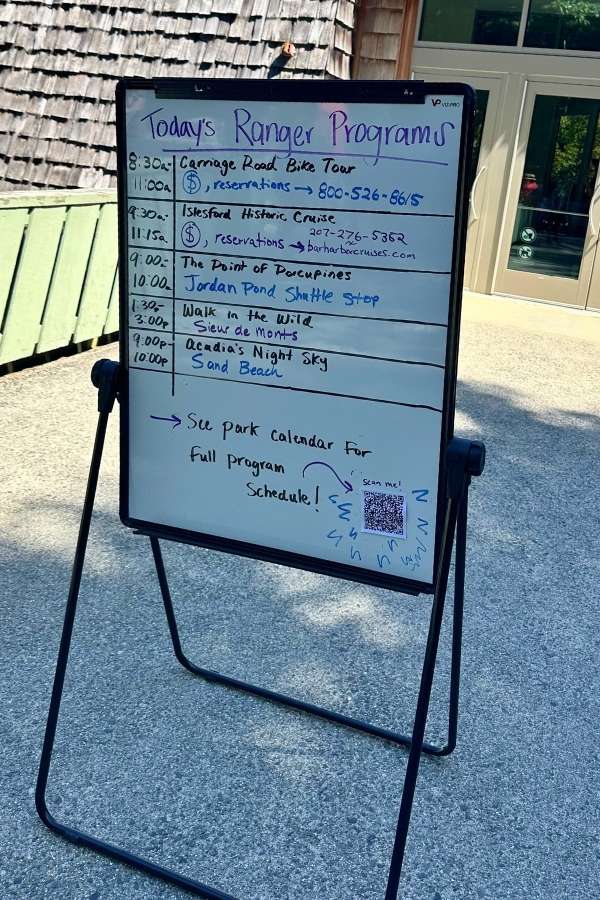 VIZ-PRO
Today's Ranger Programs
8:30a- Carriage Road Bike Tour
11:00a $, reservations → 800-526-8615
9:30a- Islesford Historic Cruise
11:15a $, reservations → 207-276-5352
barharborcruises.com
9:00- The Point of Porcupines
10:00a Jordan Pond Shuttle Stop
1:30- Walk in the Wild
3:00p Sieur de Monts
9:00p- Acadia's Night Sky
10:00p Sand Beach
→ See park calendar for
full program
Schedule!
scan me!